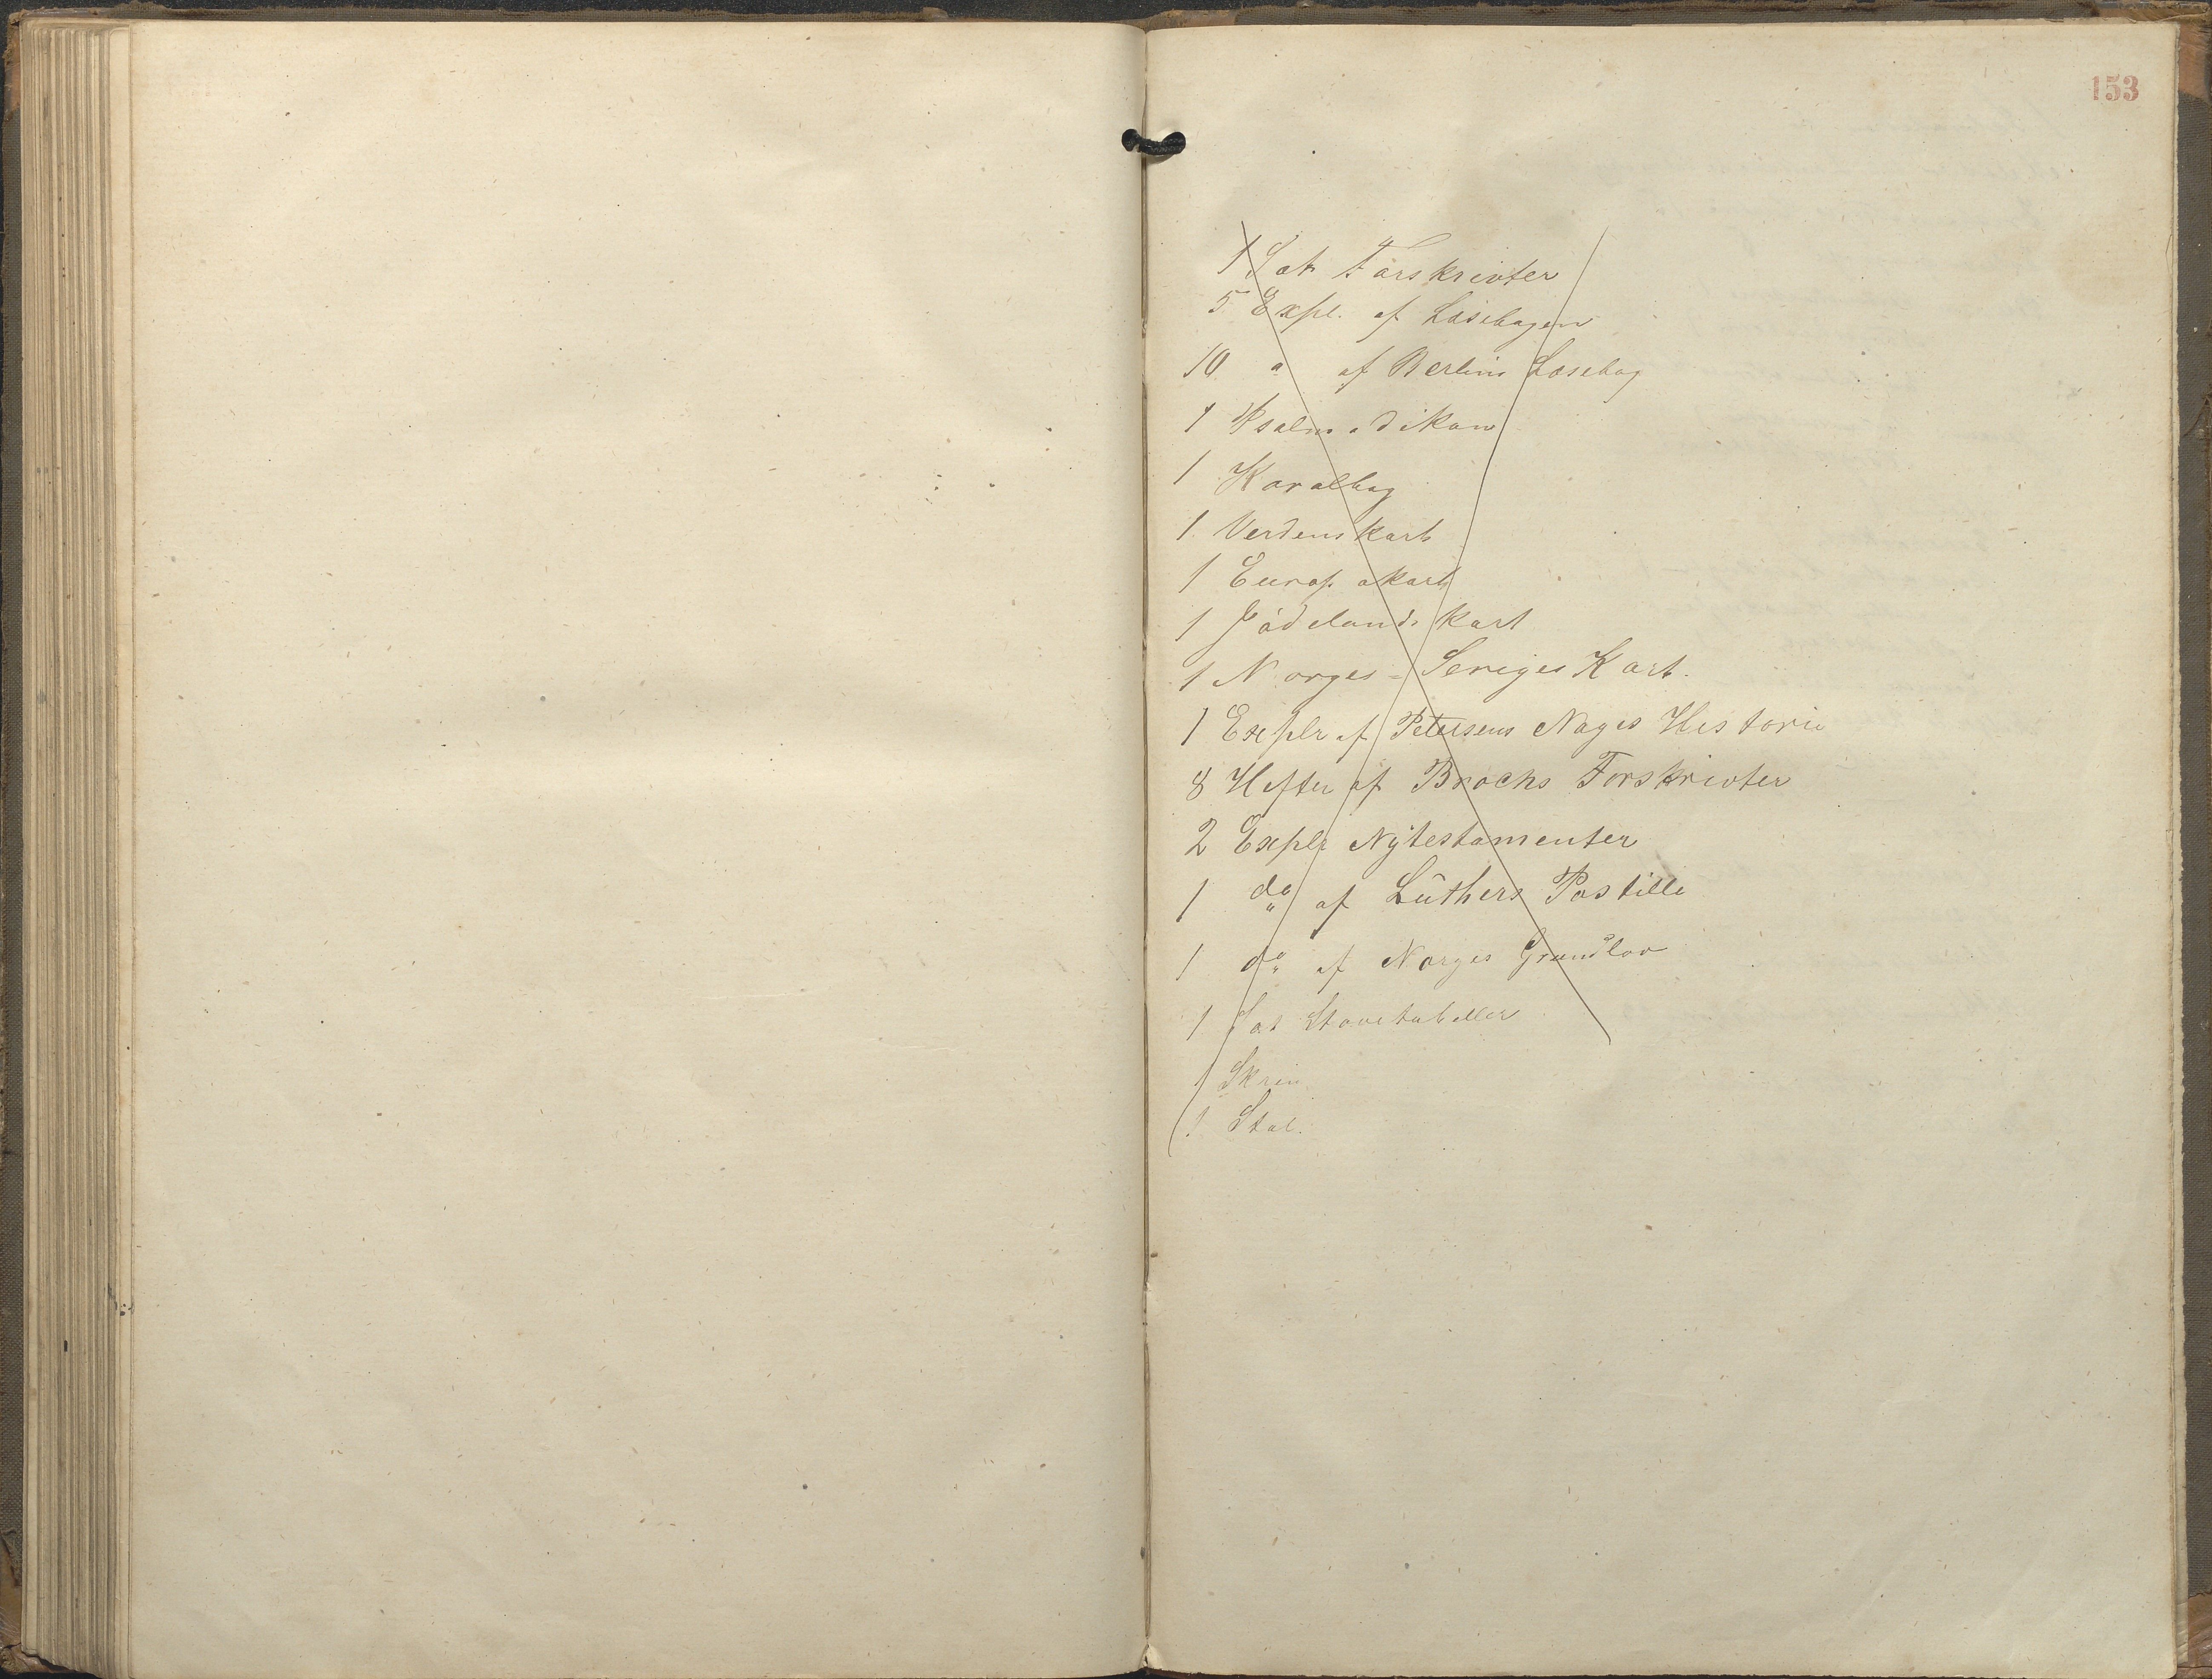 153
1 Sæt Forskrivter
5 Expl. af Læsebogen
10 " af Berlins Læsebog
1 Psalmodikon
1 Koralbog
1 Verdenskart
1 Europakart
1 Jødelands kart
1 Norges=Sveriges Kart.
1 Explr af Petersens Noges Historie
8 Hefter af Brochs Forskrivter
2 Explr Nÿtestamenter
1 do " af Luthers Postille
1 do " af Norges Grundlov
1 Sæt Stavetabeller
1 Skrin
1 Stol.